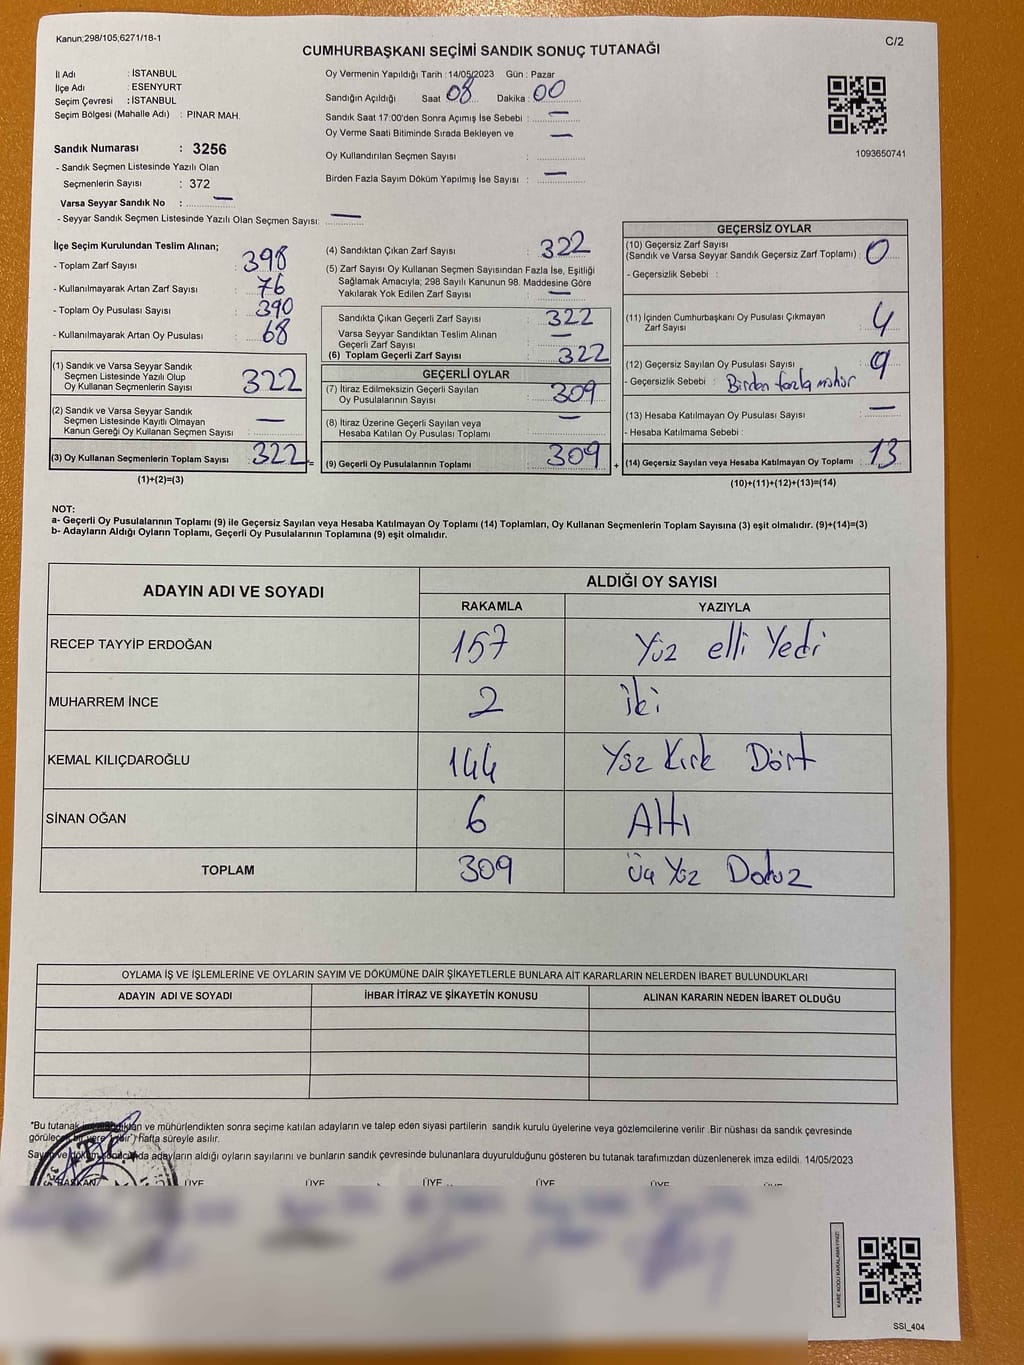 Kanun;298/105;6271/18-1
C/2
CUMHURBAŞKANI SEÇİMİ SANDIK SONUÇ TUTANAĞI
İl Adı : İSTANBUL
İlçe Adı : ESENYURT
Seçim Çevresi : İSTANBUL
Seçim Bölgesi (Mahalle Adı) : PINAR MAH.
Sandık Numarası : 3256
- Sandık Seçmen Listesinde Yazılı Olan
Seçmenlerin Sayısı : 372
Varsa Seyyar Sandık No : —
- Seyyar Sandık Seçmen Listesinde Yazılı Olan Seçmen Sayısı: —
Oy Vermenin Yapıldığı Tarih : 14/05/2023 Gün : Pazar
Sandığın Açıldığı Saat 08 Dakika : 00
Sandık Saat 17:00'den Sonra Açımış İse Sebebi : —
Oy Verme Saati Bitiminde Sırada Bekleyen ve —
Oy Kullandırılan Seçmen Sayısı :
Birden Fazla Sayım Döküm Yapılmış İse Sayısı : —
1093650741
İlçe Seçim Kurulundan Teslim Alınan;
- Toplam Zarf Sayısı : 398
- Kullanılmayarak Artan Zarf Sayısı : 76
- Toplam Oy Pusulası Sayısı : 390
- Kullanılmayarak Artan Oy Pusulası : 68
(1) Sandık ve Varsa Seyyar Sandık
Seçmen Listesinde Yazılı Olup
Oy Kullanan Seçmenlerin Sayısı : 322
(2) Sandık ve Varsa Seyyar Sandık
Seçmen Listesinde Kayıtlı Olmayan
Kanun Gereği Oy Kullanan Seçmen Sayısı : —
(3) Oy Kullanan Seçmenlerin Toplam Sayısı : 322 =
(1)+(2)=(3)
(4) Sandıktan Çıkan Zarf Sayısı : 322
(5) Zarf Sayısı Oy Kullanan Seçmen Sayısından Fazla İse, Eşitliği
Sağlamak Amacıyla; 298 Sayılı Kanunun 98. Maddesine Göre
Yakılarak Yok Edilen Zarf Sayısı : —
Sandıkta Çıkan Geçerli Zarf Sayısı : 322
Varsa Seyyar Sandıktan Teslim Alınan
Geçerli Zarf Sayısı : —
(6) Toplam Geçerli Zarf Sayısı : 322
GEÇERLİ OYLAR
(7) İtiraz Edilmeksizin Geçerli Sayılan
Oy Pusulalarının Sayısı : 309
(8) İtiraz Üzerine Geçerli Sayılan veya
Hesaba Katılan Oy Pusulası Toplamı : —
(9) Geçerli Oy Pusulalarının Toplamı : 309 +
GEÇERSİZ OYLAR
(10) Geçersiz Zarf Sayısı
(Sandık ve Varsa Seyyar Sandık Geçersiz Zarf Toplamı) : 0
- Geçersizlik Sebebi :
(11) İçinden Cumhurbaşkanı Oy Pusulası Çıkmayan
Zarf Sayısı : 4
(12) Geçersiz Sayılan Oy Pusulası Sayısı : 9
- Geçersizlik Sebebi : Birden fazla mühür
(13) Hesaba Katılmayan Oy Pusulası Sayısı : —
- Hesaba Katılmama Sebebi :
(14) Geçersiz Sayılan veya Hesaba Katılmayan Oy Toplamı : 13
(10)+(11)+(12)+(13)=(14)
NOT:
a- Geçerli Oy Pusulalarının Toplamı (9) ile Geçersiz Sayılan veya Hesaba Katılmayan Oy Toplamı (14) Toplamları, Oy Kullanan Seçmenlerin Toplam Sayısına (3) eşit olmalıdır. (9)+(14)=(3)
b- Adayların Aldığı Oyların Toplamı, Geçerli Oy Pusulalarının Toplamına (9) eşit olmalıdır.
ADAYIN ADI VE SOYADI ALDIĞI OY SAYISI
RAKAMLA YAZIYLA
RECEP TAYYİP ERDOĞAN 157 Yüz elli Yedi
MUHARREM İNCE 2 iki
KEMAL KILIÇDAROĞLU 144 Yüz Kırk Dört
SİNAN OĞAN 6 Altı
TOPLAM 309 Üç Yüz Dokuz
OYLAMA İŞ VE İŞLEMLERİNE VE OYLARIN SAYIM VE DÖKÜMÜNE DAİR ŞİKAYETLERLE BUNLARA AİT KARARLARIN NELERDEN İBARET BULUNDUKLARI
ADAYIN ADI VE SOYADI İHBAR İTİRAZ VE ŞİKAYETİN KONUSU ALINAN KARARIN NEDEN İBARET OLDUĞU
*Bu tutanak ve mühürlendikten sonra seçime katılan adayların ve talep eden siyasi partilerin sandık kurulu üyelerine veya gözlemcilerine verilir .Bir nüshası da sandık çevresinde
bir yere hafta süreyle asılır.
adayların aldığı oyların sayılarını ve bunların sandık çevresinde bulunanlara duyurulduğunu gösteren bu tutanak tarafımızdan düzenlenerek imza edildi. 14/05/2023
BAŞKAN ÜYE ÜYE ÜYE ÜYE ÜYE
KARE KODU KARALAMAYINIZ!
SSI_404